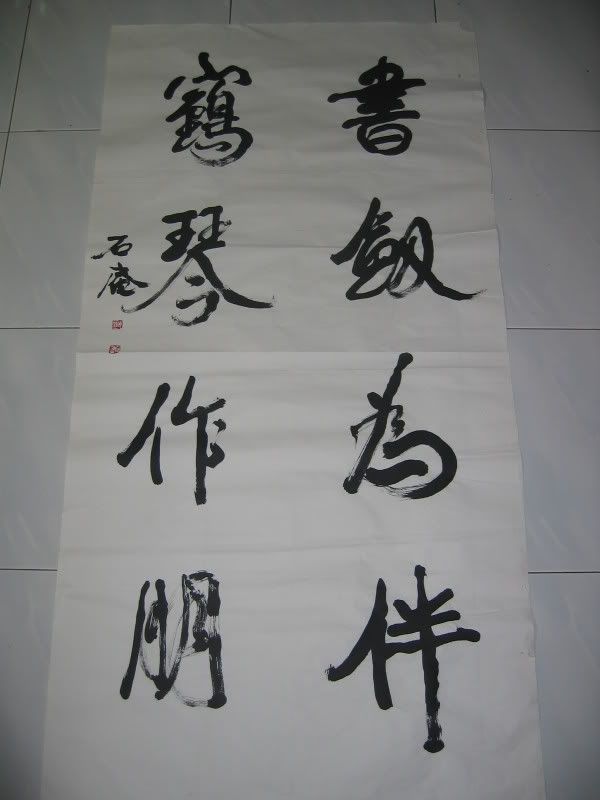 書劍為伴
鶴琴作朋
石庵